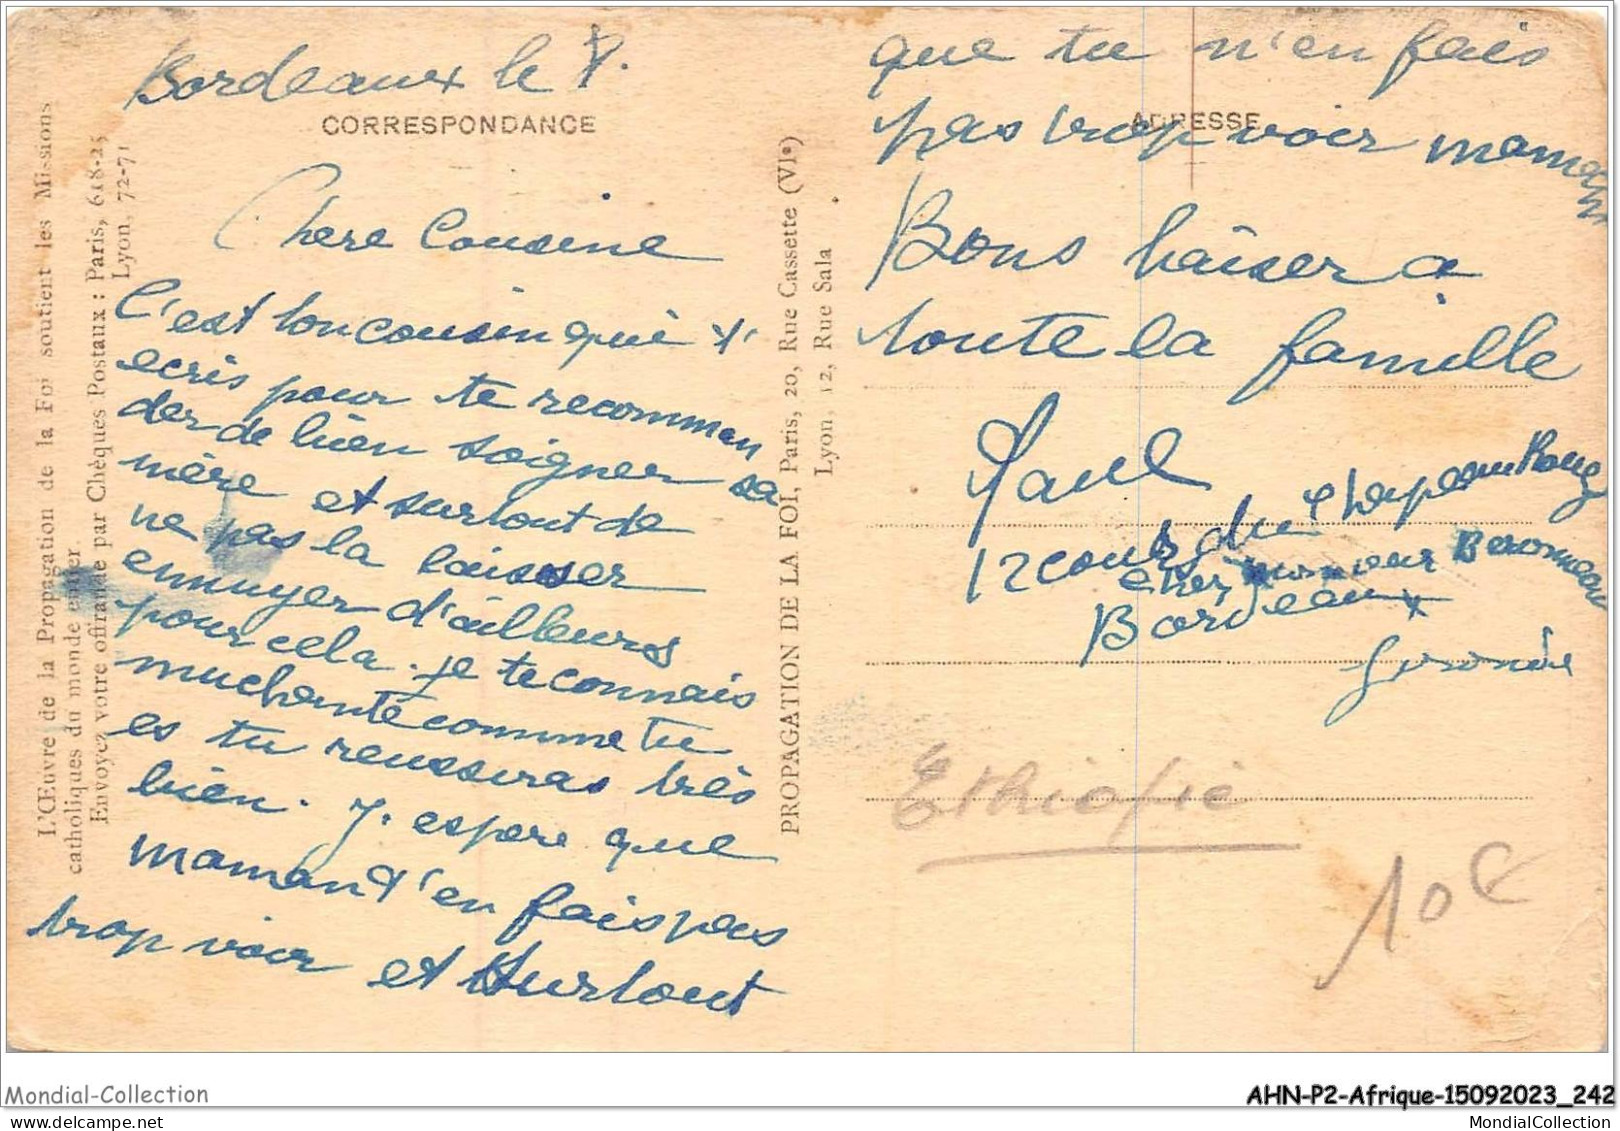 Bordeaux le 8.
CORRESPONDANCE
Chere Cousine
C'est ton cousin qui t'
ecris pour te recommen
der de bien soigner sa
mère et surtout de
ne pas la laisser
ennuyer d'ailleurs
pour cela. je te connais
muchante comme tu
es tu reussiras très
bien. J. espere que
maman t'en fais pas
trop voir et surtout
L'Œuvre de la Propagation de la Foi soutient les Missions
catholiques du monde entier.
Envoyez votre offrande par Chèques Postaux : Paris, 618-25
Lyon, 72-71
PROPAGATION DE LA FOI, Paris, 20, Rue Cassette (VIe)
Lyon, 12, Rue Sala
ADRESSE
que tu n'en fais
pas trop voir maman
Bons baiser a
toute la famille
Paul
12 cours du chapeau Rouge
chez monsieur Beronneau
Bordeaux
Gironde
Ethiopie
10€
Mondial-Collection
AHN-P2-Afrique-15092023_242
MondialCollection